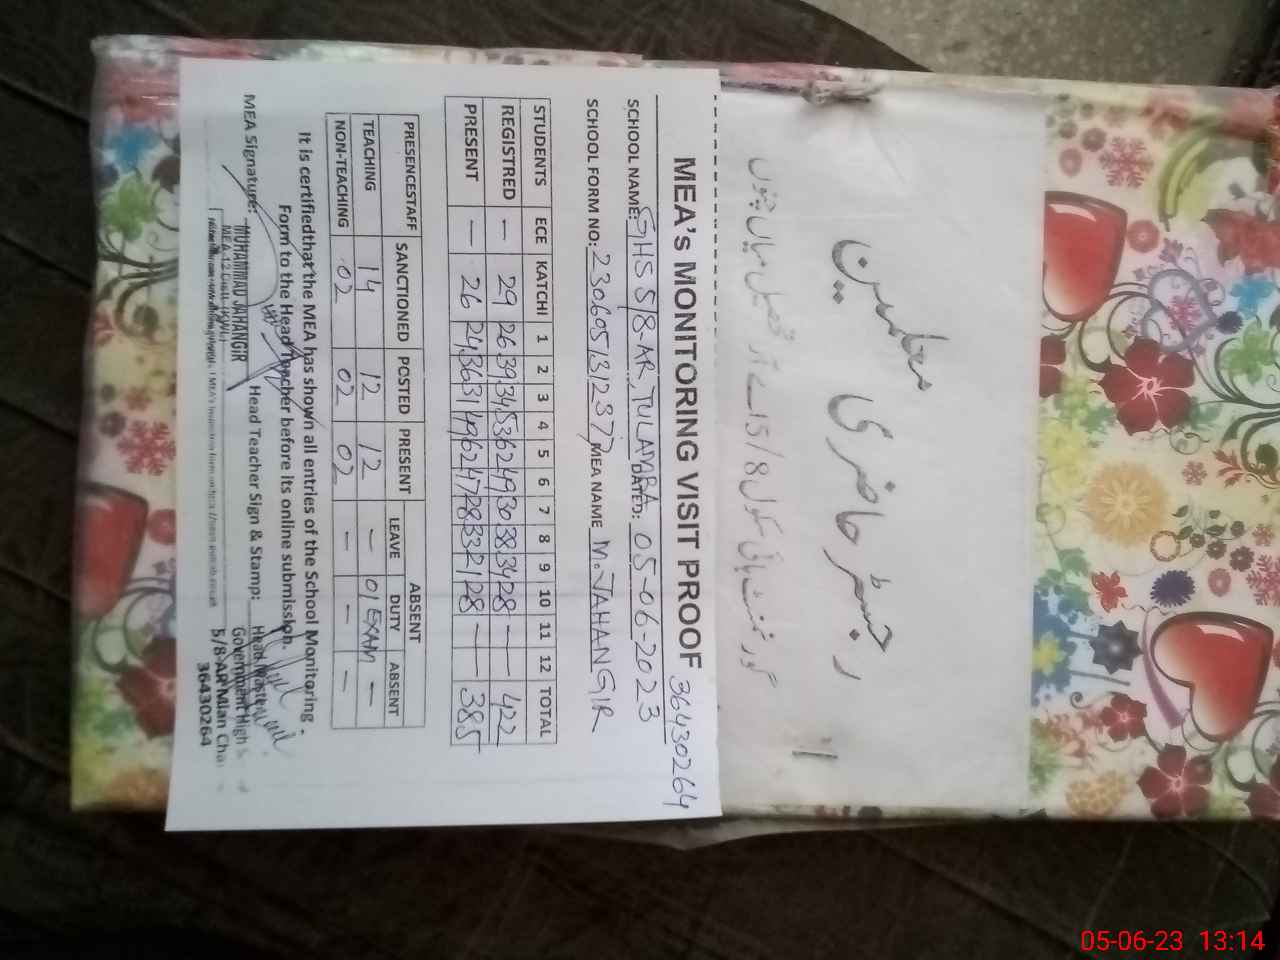 رجسٹر حاضری معلمین
گورنمنٹ ہائی سکول 5/8 اے آر تحصیل میاں چنوں
MEA's MONITORING VISIT PROOF 36430264
SCHOOL NAME: GHS 5/8-AR, TULAMBA DATED: 05-06-2023
SCHOOL FORM NO: 2306051312377 MEA NAME M. JAHANGIR
STUDENTS ECE KATCHI 1 2 3 4 5 6 7 8 9 10 11 12 TOTAL
REGISTRED — 29 26 39 34 53 62 49 30 38 34 28 — — 422
PRESENT — 26 24 36 31 49 62 47 28 33 21 28 — — 385
PRESENCESTAFF SANCTIONED POSTED PRESENT ABSENT
LEAVE DUTY ABSENT
TEACHING 14 12 12 — 01 EXAM —
NON-TEACHING 02 02 02 — — —
It is certifiedthat the MEA has shown all entries of the School Monitoring
Form to the Head Teacher before its online submission.
MEA Signature: Head Teacher Sign & Stamp:
MUHAMMAD JAHANGIR
Head Master
Government High
5/8-AR Mian Cha
36430264
05-06-23 13:14